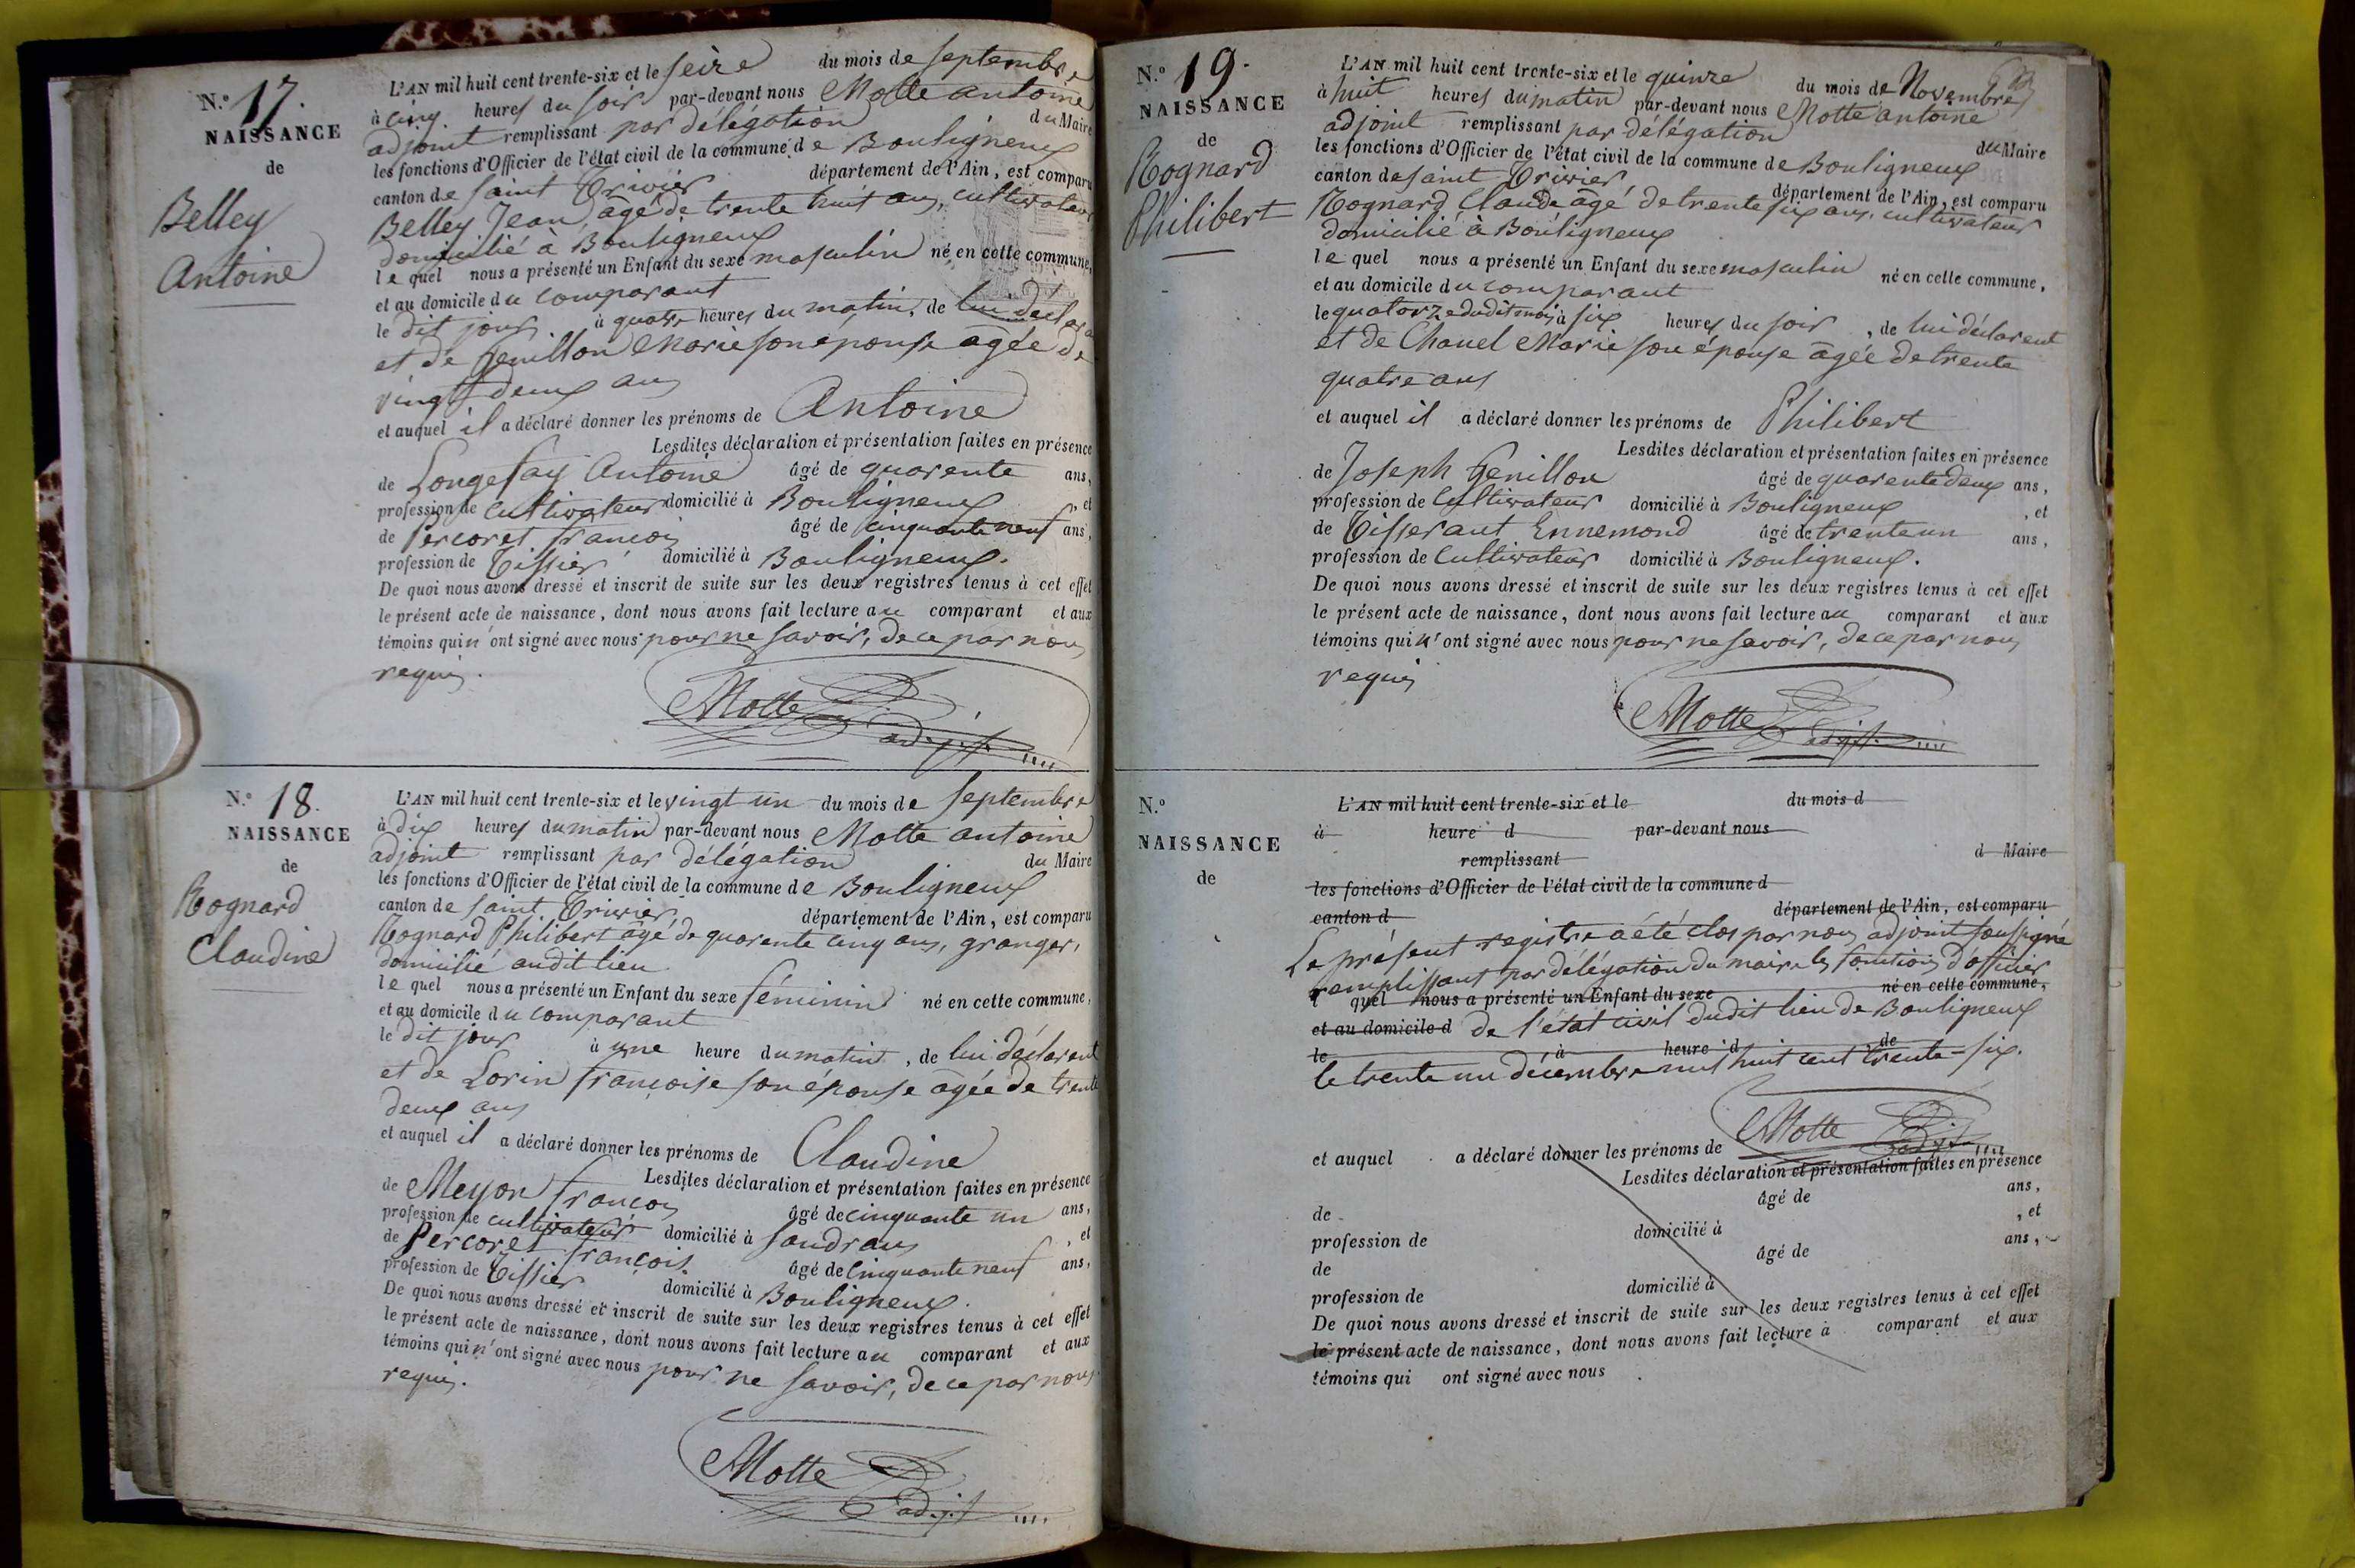 N.º 17.
NAISSANCE
de
Belley
Antoine
L'AN mil huit cent trente-six et le seize du mois de septembre
à cinq heures du soir par-devant nous Motte antoine
adjoint remplissant par délégation du Maire
les fonctions d'Officier de l'état civil de la commune de Bouligneux
canton de saint Trivier département de l'Ain, est comparu
Belley Jean âgé de trente huit ans, cultivateur
domicilié à Bouligneux
le quel nous a présenté un Enfant du sexe masculin né en cette commune,
et au domicile du comparant
le dit jour à quatre heures du matin, de lui déclara
et de Genillon Marie son épouse âgée de
vingt deux ans
et auquel il a déclaré donner les prénoms de Antoine
Lesdites déclaration et présentation faites en présence
de Longefay Antoine âgé de quarente ans,
profession de cultivateur domicilié à Bouligneux, et
de Percoret françois âgé de cinquante neuf ans,
profession de Tissier domicilié à Bouligneux.
De quoi nous avons dressé et inscrit de suite sur les deux registres tenus à cet effet
le présent acte de naissance, dont nous avons fait lecture au comparant et aux
témoins qui n'ont signé avec nous pour ne savoir, de ce par nous
requis.
Motte
adjt.
N.º 18.
NAISSANCE
de
Rognard
Claudine
L'AN mil huit cent trente-six et le vingt un du mois de septembre
à dix heures du matin par-devant nous Motte antoine
adjoint remplissant par délégation du Maire
les fonctions d'Officier de l'état civil de la commune de Bouligneux
canton de saint Trivier département de l'Ain, est comparu
Rognard Philibert âgé de quarente cinq ans, granger,
domicilié audit lieu
le quel nous a présenté un Enfant du sexe féminin né en cette commune,
et au domicile du comparant
le dit jour à une heure du matin, de lui déclarent
et de Lorin françoise son épouse âgée de trente
deux ans
et auquel il a déclaré donner les prénoms de Claudine
Lesdites déclaration et présentation faites en présence
de Meyon françois âgé de cinquante un ans,
profession de cultivateur domicilié à sandrans, et
de Percoret françois âgé de cinquante neuf ans,
profession de Tissier domicilié à Bouligneux.
De quoi nous avons dressé et inscrit de suite sur les deux registres tenus à cet effet
le présent acte de naissance, dont nous avons fait lecture au comparant et aux
témoins qui n'ont signé avec nous pour ne savoir, de ce par nous
requis.
Motte
adjt
N.º 19.
NAISSANCE
de
Rognard
Philibert
L'AN mil huit cent trente-six et le quinze du mois de Novembre
à huit heures du matin par-devant nous Motte antoine
adjoint remplissant par délégation du Maire
les fonctions d'Officier de l'état civil de la commune de Bouligneux
canton de saint Trivier département de l'Ain, est comparu
Rognard Claude âgé de trente six ans, cultivateur
domicilié à Bouligneux
le quel nous a présenté un Enfant du sexe masculin né en cette commune,
et au domicile du comparant
le quatorze dudit mois à six heures du soir, de lui déclarent
et de Chanel Marie son épouse âgée de trente
quatre ans
et auquel il a déclaré donner les prénoms de Philibert
Lesdites déclaration et présentation faites en présence
de Joseph Genillon âgé de quarente deux ans,
profession de Cultivateur domicilié à Bouligneux, et
de Tisserant Ennemond âgé de trente un ans,
profession de Cultivateur domicilié à Bouligneux.
De quoi nous avons dressé et inscrit de suite sur les deux registres tenus à cet effet
le présent acte de naissance, dont nous avons fait lecture au comparant et aux
témoins qui n'ont signé avec nous pour ne savoir, de ce par nous
requis
Motte
adjt.
N.º
NAISSANCE
de
L'AN mil huit cent trente-six et le du mois d
à heure d par-devant nous
remplissant d Maire
les fonctions d'Officier de l'état civil de la commune d
canton d département de l'Ain, est comparu
Le présent registre a été clos par nous adjoint soussigné
remplissant par délégation du maire les fonctions d'officier
l quel nous a présenté un Enfant du sexe né en cette commune,
et au domicile d de l'état civil dudit lieu de Bouligneux
le à heure d de
le trente un décembre mil huit cent trente-six.
Motte
adjt
et auquel a déclaré donner les prénoms de
Lesdites déclaration et présentation faites en présence
de âgé de ans,
profession de domicilié à , et
de âgé de ans,
profession de domicilié à
De quoi nous avons dressé et inscrit de suite sur les deux registres tenus à cet effet
le présent acte de naissance, dont nous avons fait lecture à comparant et aux
témoins qui ont signé avec nous